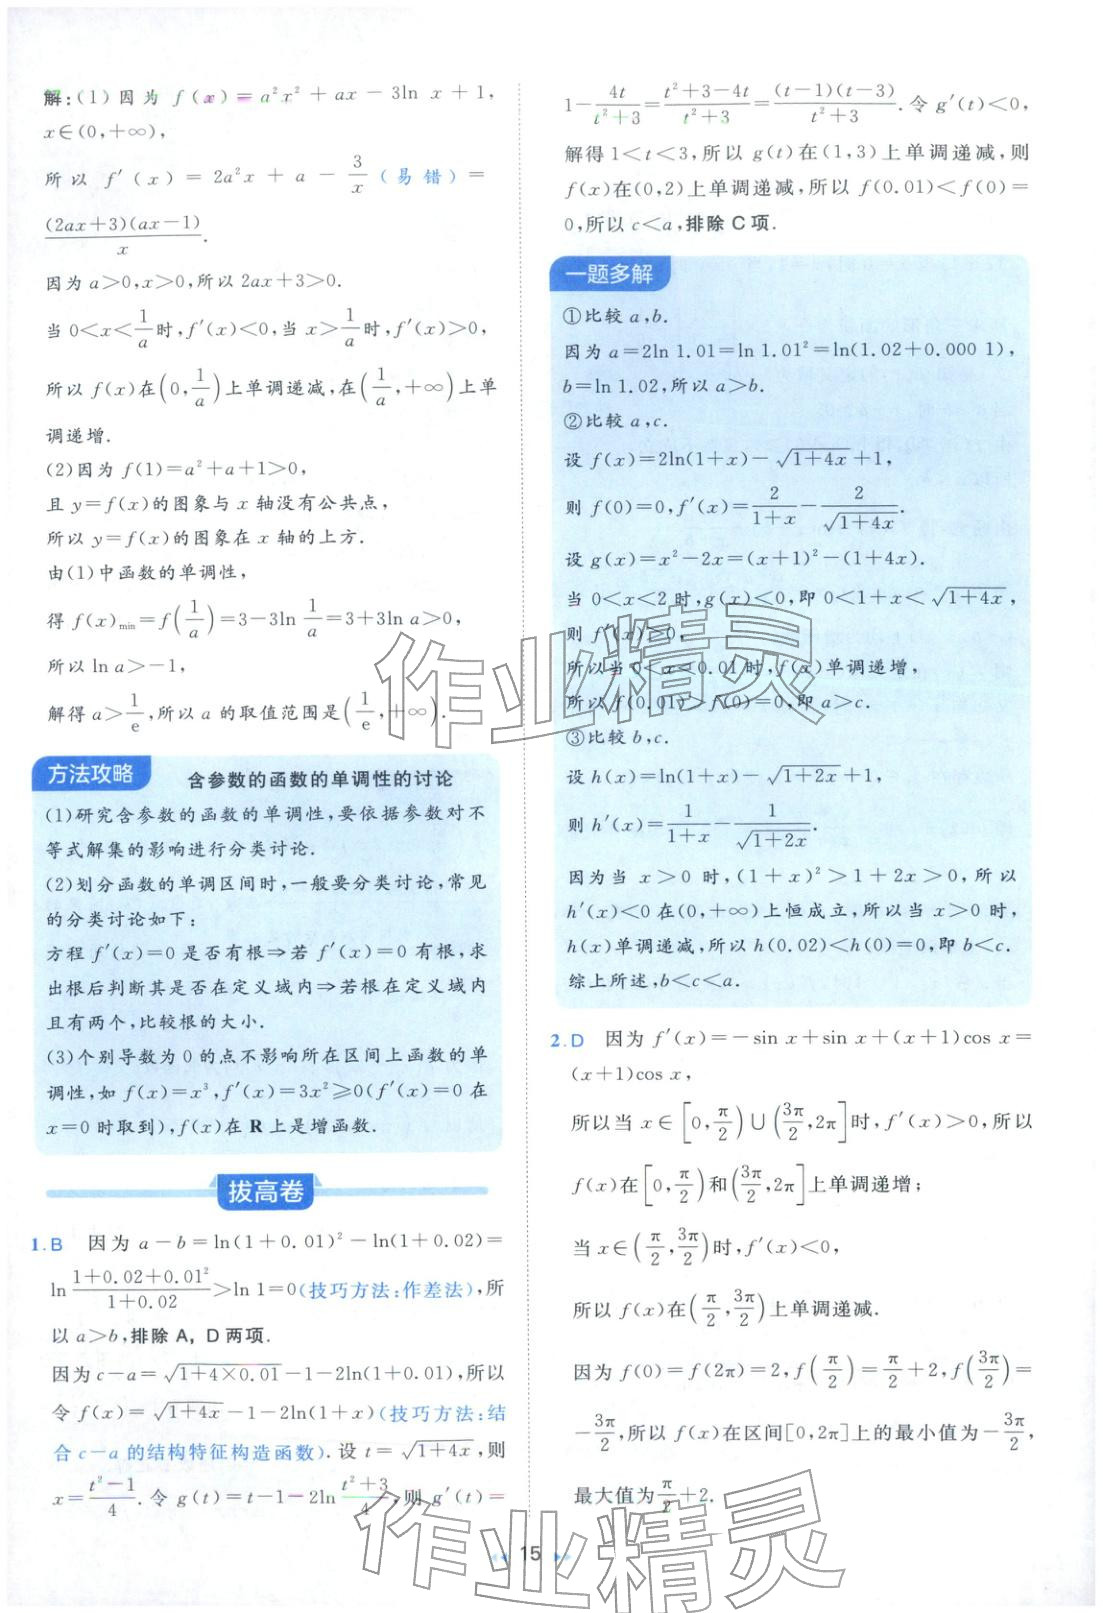 解:(1)因为 f(x)=a²x²+ax-3ln x+1,
x∈(0,+∞),
所以 f′(x)=2a²x+a-3/x(易错)=
(2ax+3)(ax-1)/x.
因为 a>0,x>0,所以 2ax+3>0.
当 0<x<1/a时,f′(x)<0,当 x>1/a时,f′(x)>0,
所以 f(x)在(0,1/a)上单调递减,在(1/a,+∞)上单
调递增.
(2)因为 f(1)=a²+a+1>0,
且 y=f(x)的图象与 x 轴没有公共点,
所以 y=f(x)的图象在 x 轴的上方.
由(1)中函数的单调性,
得 f(x)min=f(1/a)=3-3ln 1/a=3+3ln a>0,
所以 ln a>-1,
解得 a>1/e,所以 a 的取值范围是(1/e,+∞).
方法攻略 含参数的函数的单调性的讨论
(1)研究含参数的函数的单调性,要依据参数对不
等式解集的影响进行分类讨论.
(2)划分函数的单调区间时,一般要分类讨论,常见
的分类讨论如下:
方程 f′(x)=0 是否有根⇒若 f′(x)=0 有根,求
出根后判断其是否在定义域内⇒若根在定义域内
且有两个,比较根的大小.
(3)个别导数为 0 的点不影响所在区间上函数的单
调性,如 f(x)=x³,f′(x)=3x²≥0(f′(x)=0 在
x=0 时取到),f(x)在 R 上是增函数.
拔高卷
1.B 因为 a-b=ln(1+0.01)²-ln(1+0.02)=
ln (1+0.02+0.01²)/(1+0.02)>ln 1=0(技巧方法:作差法),所
以 a>b,排除 A, D 两项.
因为 c-a=√(1+4×0.01)-1-2ln(1+0.01),所以
令 f(x)=√(1+4x)-1-2ln(1+x)(技巧方法:结
合 c-a 的结构特征构造函数).设 t=√(1+4x),则
x=(t²-1)/4.令 g(t)=t-1-2ln (t²+3)/4,则 g′(t)=
1-4t/(t²+3)=(t²+3-4t)/(t²+3)=(t-1)(t-3)/(t²+3).令 g′(t)<0,
解得 1<t<3,所以 g(t)在(1,3)上单调递减,则
f(x)在(0,2)上单调递减,所以 f(0.01)<f(0)=
0,所以 c<a,排除 C 项.
一题多解
①比较 a,b.
因为 a=2ln 1.01=ln 1.01²=ln(1.02+0.000 1),
b=ln 1.02,所以 a>b.
②比较 a,c.
设 f(x)=2ln(1+x)-√(1+4x)+1,
则 f(0)=0,f′(x)=2/(1+x)-2/√(1+4x).
设 g(x)=x²-2x=(x+1)²-(1+4x).
当 0<x<2 时,g(x)<0,即 0<1+x<√(1+4x),
则 f′(x)>0,
所以当 0<x<0.01 时,f(x)单调递增,
所以 f(0.01)>f(0)=0,即 a>c.
③比较 b,c.
设 h(x)=ln(1+x)-√(1+2x)+1,
则 h′(x)=1/(1+x)-1/√(1+2x).
因为当 x>0 时,(1+x)²>1+2x>0,所以
h′(x)<0 在(0,+∞)上恒成立,所以当 x>0 时,
h(x)单调递减,所以 h(0.02)<h(0)=0,即 b<c.
综上所述,b<c<a.
2.D 因为 f′(x)=-sin x+sin x+(x+1)cos x=
(x+1)cos x,
所以当 x∈[0,π/2)∪(3π/2,2π]时,f′(x)>0,所以
f(x)在[0,π/2)和(3π/2,2π]上单调递增;
当 x∈(π/2,3π/2)时,f′(x)<0,
所以 f(x)在(π/2,3π/2)上单调递减.
因为 f(0)=f(2π)=2,f(π/2)=π/2+2,f(3π/2)=
-3π/2,所以 f(x)在区间[0,2π]上的最小值为-3π/2,
最大值为π/2+2.
15
作业精灵
作业精灵